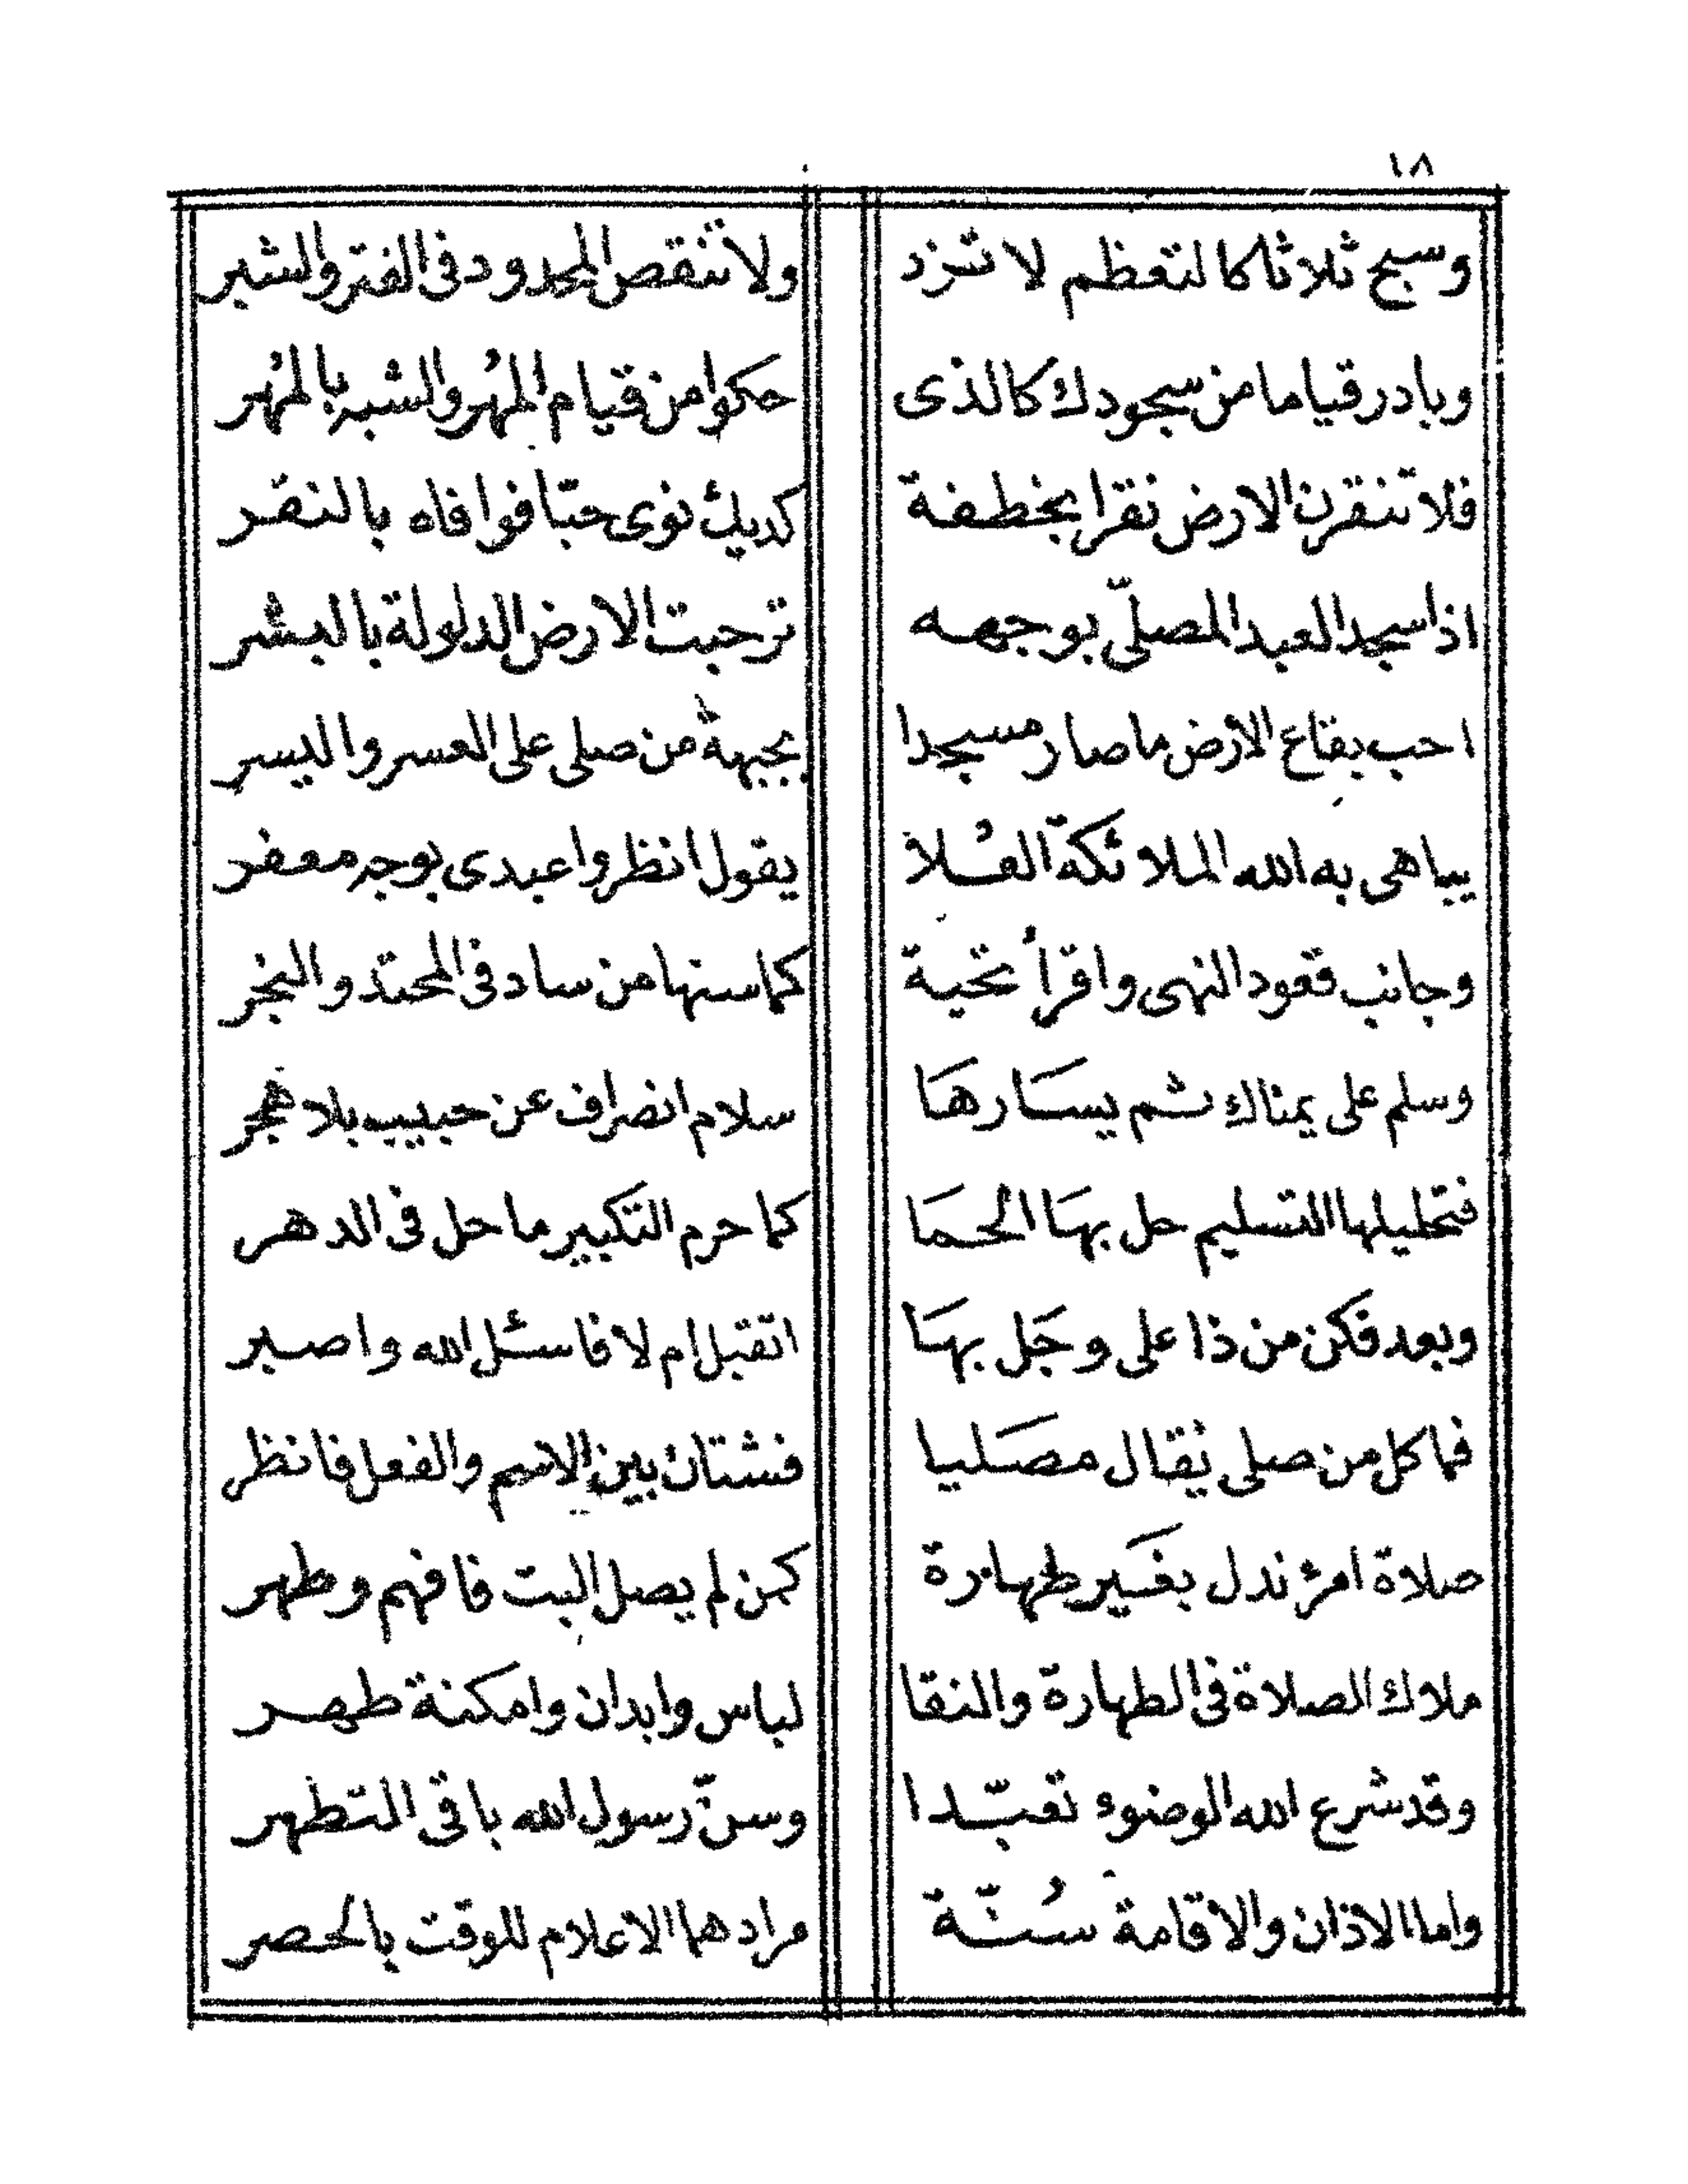 ١٨
وسبح ثلاثا كالتعظم لا تزد ولا تنقص المحدود في الفتر والشبر
وبادر قياما من سجودك كالذى حكوا من قيام المُهر والشبه بالمُهر
فلا تنقرن الارض نقرا بخطفة كديك نوى حبّا فوافاه بالنقر
اذا سجد العبد المصلّي بوجهه ترحبت الارض الدلولة بالبشر
احب بقاع الارض ما صار مسجدا بجبهة من صلى على العسر واليسر
يباهى به الله الملائكة العُلا يقول انظروا عبدى بوجه معفر
وجانب قعود النهى واقرأ تحية كما سنها من ساد في المحتد والنجر
وسلم على يمناك ثم يسَارهَا سلام انصراف عن حبيب بلا هجر
فتحليلها التسليم حل بهَا الحمَا كما حرم التكبير ما حل في الدهر
وبعد فكن من ذا على وجَل بهَا اتقبل ام لا فاسئل الله واصبر
فما كل من صلى يُقال مصَليا فشتان بين الاسم والفعل فانظر
صلاة امرئ ندل بغَير طهارة كمن لم يصل البت فافهم وطهر
ملاك الصلاة في الطهارة والنقا لباس وابدان وامكنة طهر
وقد شرع الله الوضوء تعبّدا وسنّ رسول الله باقى التطهر
واما الاذان والاقامة سُنّة مرادهما الاعلام للوقت بالحصر